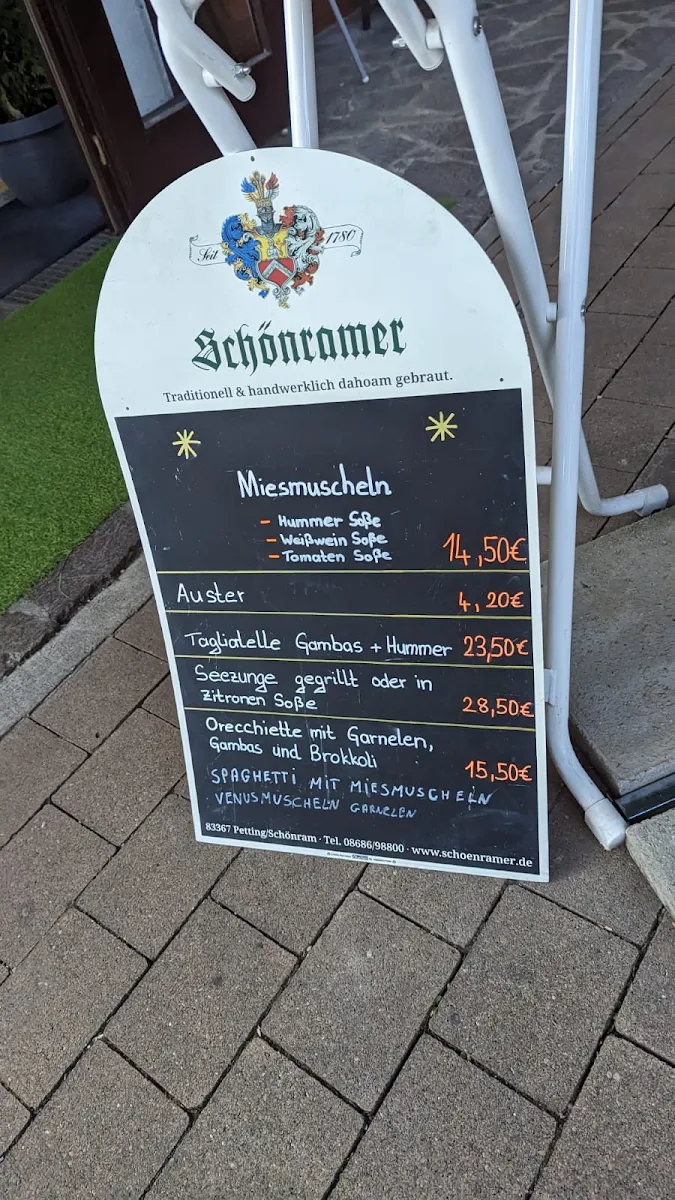 Seit 1780
Schönramer
Traditionell & handwerklich dahoam gebraut.
Miesmuscheln
- Hummer Soße
- Weißwein Soße
- Tomaten Soße 14,50€
Auster 4,20€
Tagliatelle Gambas + Hummer 23,50€
Seezunge gegrillt oder in
Zitronen Soße 28,50€
Orecchiette mit Garnelen,
Gambas und Brokkoli 15,50€
SPAGHETTI MIT MIESMUSCHELN
VENUSMUSCHELN GARNELEN
83367 Petting/Schönram · Tel. 08686/98800 · www.schoenramer.de